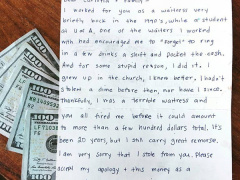 Dear Carlotta + Family -
I worked for you as a waitress very
briefly back in the 1990's, while a student
at U of A, one of the waiters I worked
with had encouraged me to "forget" to ring
in a few drinks a shift and pocket the cash.
And for some stupid reason, I did it. I
grew up in the church, I knew better, I hadn't
stolen a dime before then, nor have I since.
Thankfully, I was a terrible waitress and
you all fired me before it could amount
to more than a few hundred dollars total. It's
been 20 years, but I still carry great remorse.
I am very sorry that I stole from you. Please
accept my apology + this money as a
100
100
100
LF